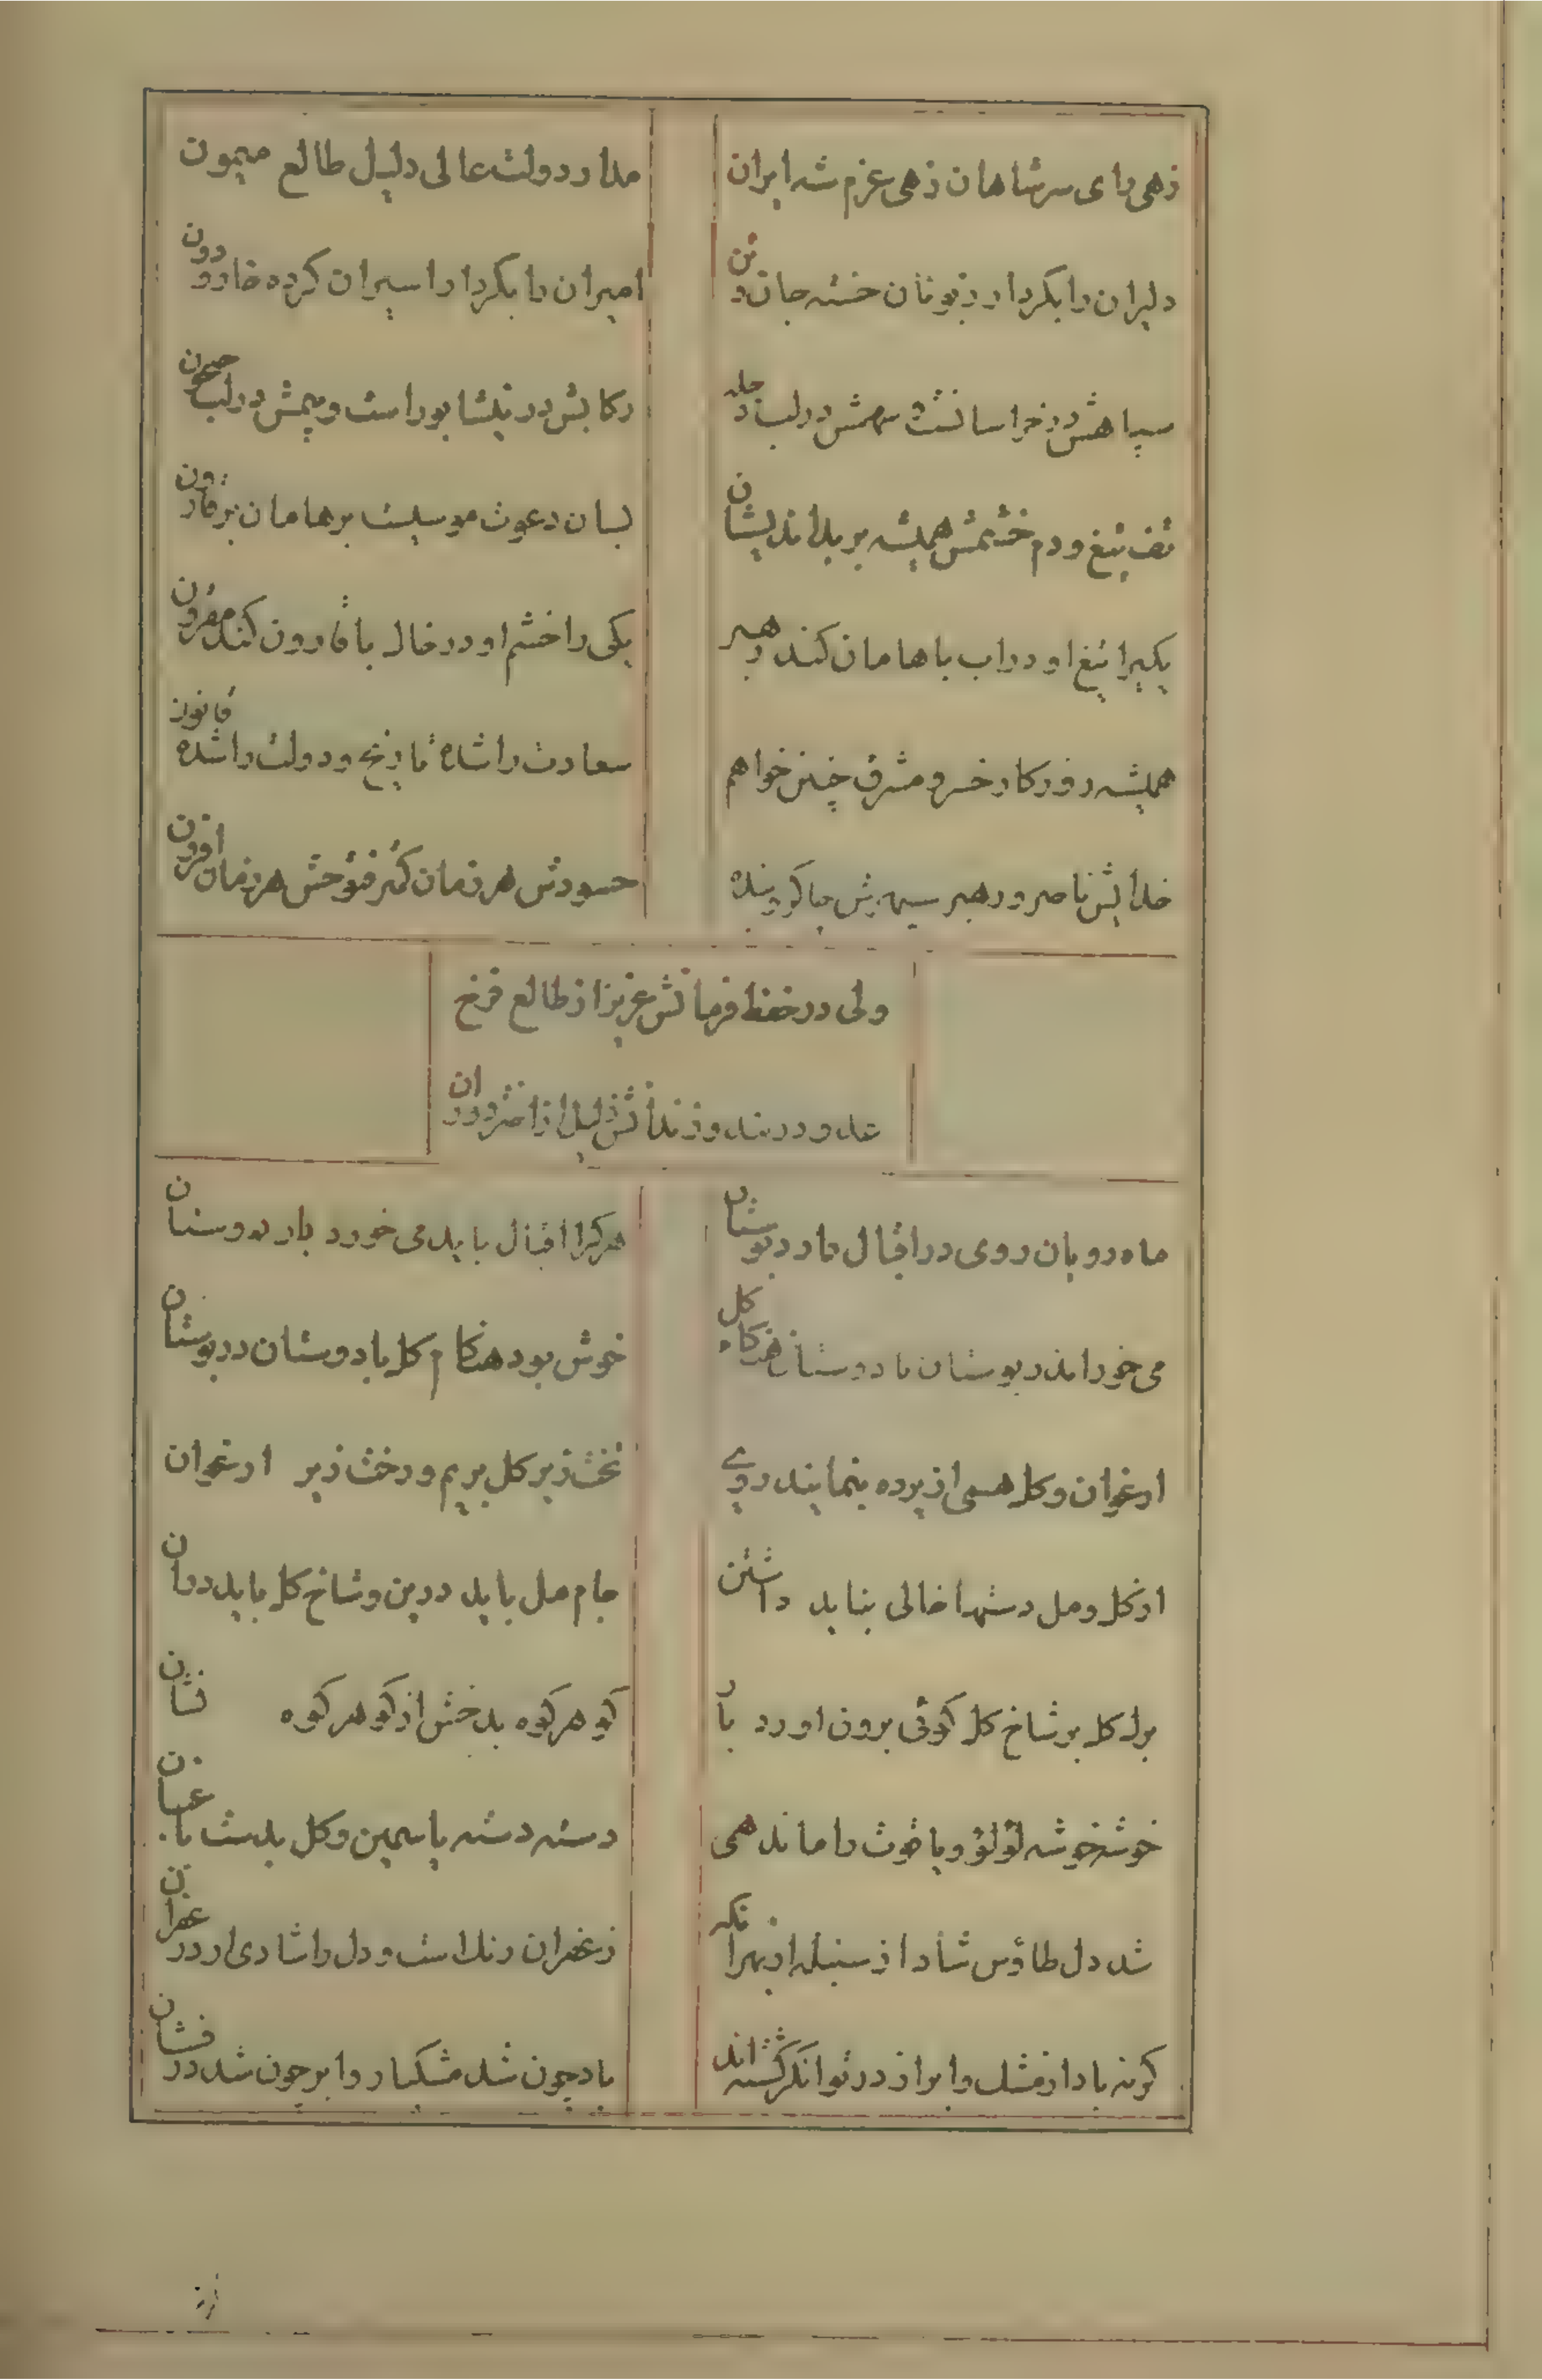 زهی رای سر شاهان زهی عزم شه ایران
مدار دولت عالی دلیل طالع میمون
دلیران را بکردار زنونان خسته جان و تن
امیران را بکردار اسیران کرده خار و دون
سپاهش در خراسانست سهمش در لب دجله
رکابش در نیشابور است و بیمش در لب جیحون
تف تیغ و دم خشمش همیشه بر بداندیشان
بسان دعوت موسیست بر هامان بر قارون
یکیرا تیغ او در اب با هامان کند رهبر
یکی را خشم او در خاک با قارون کند مقرون
همیشه روزکار خسرو مشرق چنین خواهم
سعادت را شده تاریخ و دولت را شده قانون
خدایش ناصر و رهبر سپهرش چاکر و بنده
حسودش هر زمان کمتر فتوحش هر زمان افزون
ولی در حفظ فرمانش عزیز از طالع فرخ
عدو در بند و زندانش ذلیل از اختر وارون
ماه رویان روی در اقبال دارد بوستان
هر کرا اقبال باید می خورد با دوستان
می خور اندر بوستان با دوستان هنکام کل
خوش بود هنکام کل با دوستان در بوستان
ارغوان و کل همی از پرده بنمایند روی
تخت زیر کل بریم و رخت زیر ارغوان
از کل و مل دستها خالی نباید داشتن
جام مل باید درین و شاخ کل باید دران
برک کل بر شاخ کل کوئی برون اورد باز
کوهر کوه بدخش از کوهر کوه
خوشه خوشه لؤلؤ و یاقوت را ماند همی
دسته دسته یاسمین و کل بدست باغبان
شد دل طاؤس شاد از سنبله از بهر انکه
زعفران رنک است و دل را شادی ارد زعفران
کرنه باد از مشک و ابر از در توانکر کشته اند
باد چون شد مشکبار و ابر چون شد در فشان